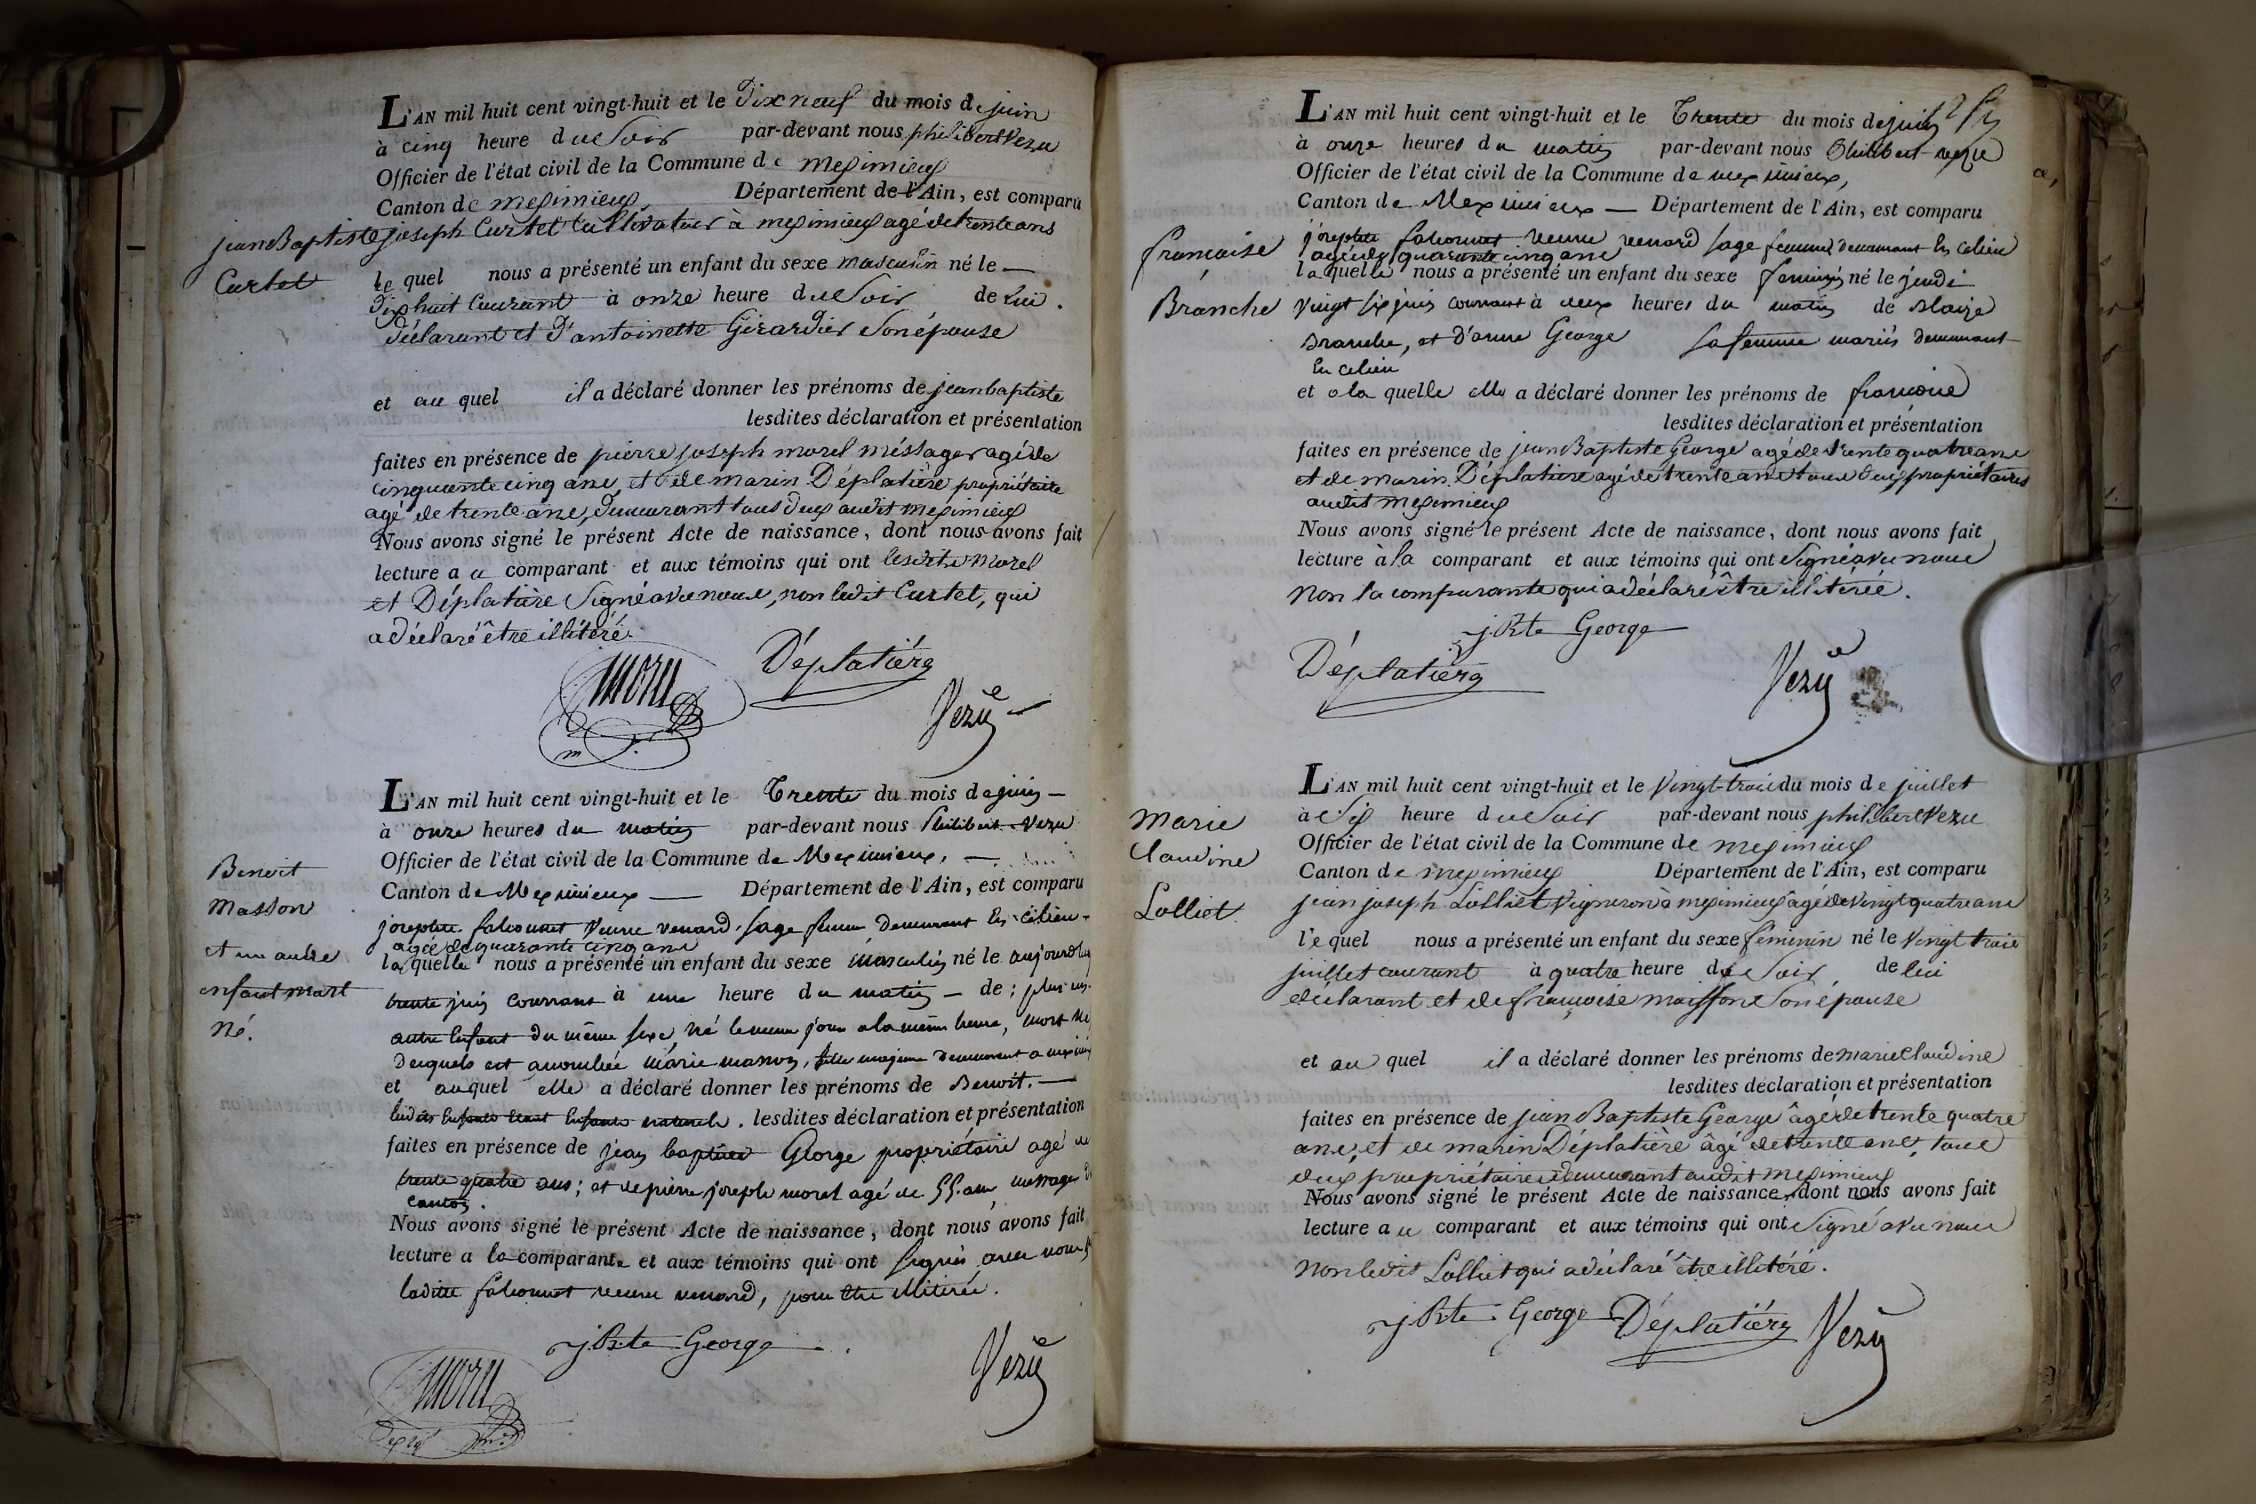 L'AN mil huit cent vingt-huit et le dix neuf du mois de juin
à cinq heure du Soir par-devant nous philibert Vezu
Officier de l'état civil de la Commune de meximieux
Canton de meximieux, Département de l'Ain, est comparu
jean Baptiste
Cartet
joseph Curtet Cultivateur à meximieux agé de trente ans
le quel nous a présenté un enfant du sexe masculin né le —
dix huit Courant à onze heure du Soir de Lui
déclarant et d'antoinette Girardier Son épouse
et au quel il a déclaré donner les prénoms de jean baptiste
lesdites déclaration et présentation
faites en présence de pierre joseph morel méssager agé de
cinquante cinq ans, et de marin Déplatière propriétaire
agé de trente ans, demeurant tous deux audit meximieux
Nous avons signé le présent Acte de naissance, dont nous avons fait
lecture a u comparant et aux témoins qui ont lesdits Morel
et Déplatière Signé avec nous, non ledit Curtet, qui
a déclaré être illitéré.
Morel Déplatière
Vezu
L'AN mil huit cent vingt-huit et le Trente du mois de juin —
à onze heures du matin par-devant nous Philibert Vezu
Officier de l'état civil de la Commune de Meximieux, —
Canton de Meximieux — Département de l'Ain, est comparu
Benoit
Masson
et un autre
enfant mort
né.
josephte falconnet Veuve venard, sage femme demeurant En Célieu
agée de quarante cinq ans
la quelle nous a présenté un enfant du sexe masculin né le aujourd'huy
trente juin courrant à une heure du matin — de; plus un
autre Enfant du même sexe, Né le meme jour a la même heure, mort né
desquels est accouchée Marie masson, fille majeure demeurant a
et auquel elle a déclaré donner les prénoms de Benoit. —
Enfants naturels. lesdites déclaration et présentation
faites en présence de jean baptiste George propriétaire agé de
trente quatre ans; et de pierre joseph morel agé de 55. ans messager
canton.
Nous avons signé le présent Acte de naissance, dont nous avons fait
lecture a la comparante et aux témoins qui ont signés avec nous,
laditte falconnet veuve venard, pour être illitérée.
j Bte George
Morel Vezu
L'AN mil huit cent vingt-huit et le Trente du mois de juin
à onze heures du matin par-devant nous Philibert vezu
Officier de l'état civil de la Commune de meximieux,
Canton de Meximieux — Département de l'Ain, est comparu
francoise
Branche
josephte falconnet veuve venard sage femme demeurant En Célieu
agée de quarante cinq ans
la quelle nous a présenté un enfant du sexe feminin né le jeudi
vingt six juin courrant à deux heures du matin de Blaize
Branche, et d'anne George sa femme mariés demeurant
En célieu
et a la quelle elle a déclaré donner les prénoms de francoise
lesdites déclaration et présentation
faites en présence de jean Baptiste George agé de trente quatre ans
et de marin Déplatiere agé de trente ans tous deux propriétaires
audit meximieux
Nous avons signé le présent Acte de naissance, dont nous avons fait
lecture à la comparant et aux témoins qui ont Signé avec nous
Non la comparante qui a déclaré être illitérée.
j Bte George
Déplatière Vezu
L'AN mil huit cent vingt-huit et le Vingt-trois du mois de juillet
à Six heure du Soir par-devant nous philibert Vezu
Officier de l'état civil de la Commune de meximieux
Canton de meximieux Département de l'Ain, est comparu
Marie
Claudine
Lolliet
jean joseph Lolliet Vigneron à meximieux âgé de vingt quatre ans
le quel nous a présenté un enfant du sexe féminin né le vingt trois
juillet courant à quatre heure du Soir de lui
déclarant et de françoise maisson Son épouse
et au quel il a déclaré donner les prénoms de marie Claudine
lesdites déclaration et présentation
faites en présence de jean Baptiste George âgé de trente quatre
ans, et de marin Déplatière âgé de trente ans, tous
deux propriétaires demeurant audit meximieux
Nous avons signé le présent Acte de naissance, dont nous avons fait
lecture a u comparant et aux témoins qui ont Signé avec nous
Non ledit Lolliet qui a déclaré être illitéré.
j Bte George Déplatière Vezu